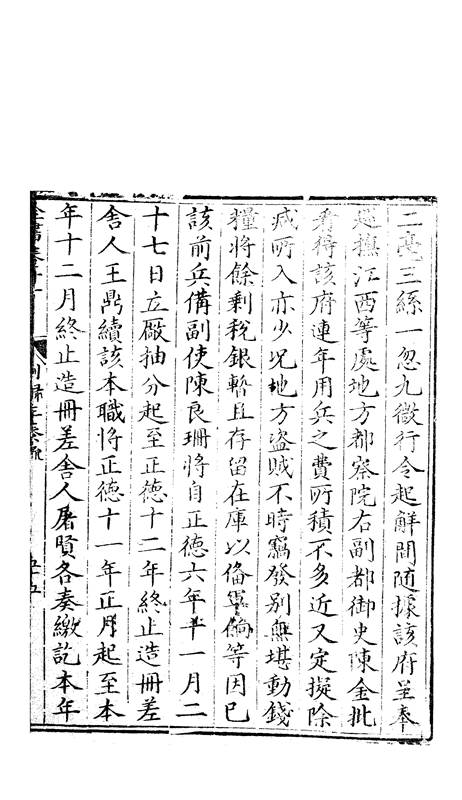 二毫三絲一忽九微行令起解間隨據該府呈奉
巡撫江西等處地方都察院右副都御史陳金批
看得該府連年用兵之費所積不多近又定擬除
減所入亦少况地方盗賊不時竊發别無堪動錢
糧將餘剩稅銀暫且存留在庫以俻等因已
該前兵備副使陳良珊將自正德六年十一月二
十七日立厰抽分起至正德十二年終止造冊差
舍人王鼎續該本職將正德十一年正月起至本
年十二月終止造冊差舍人屠賢各奏繳訖本年
五十五